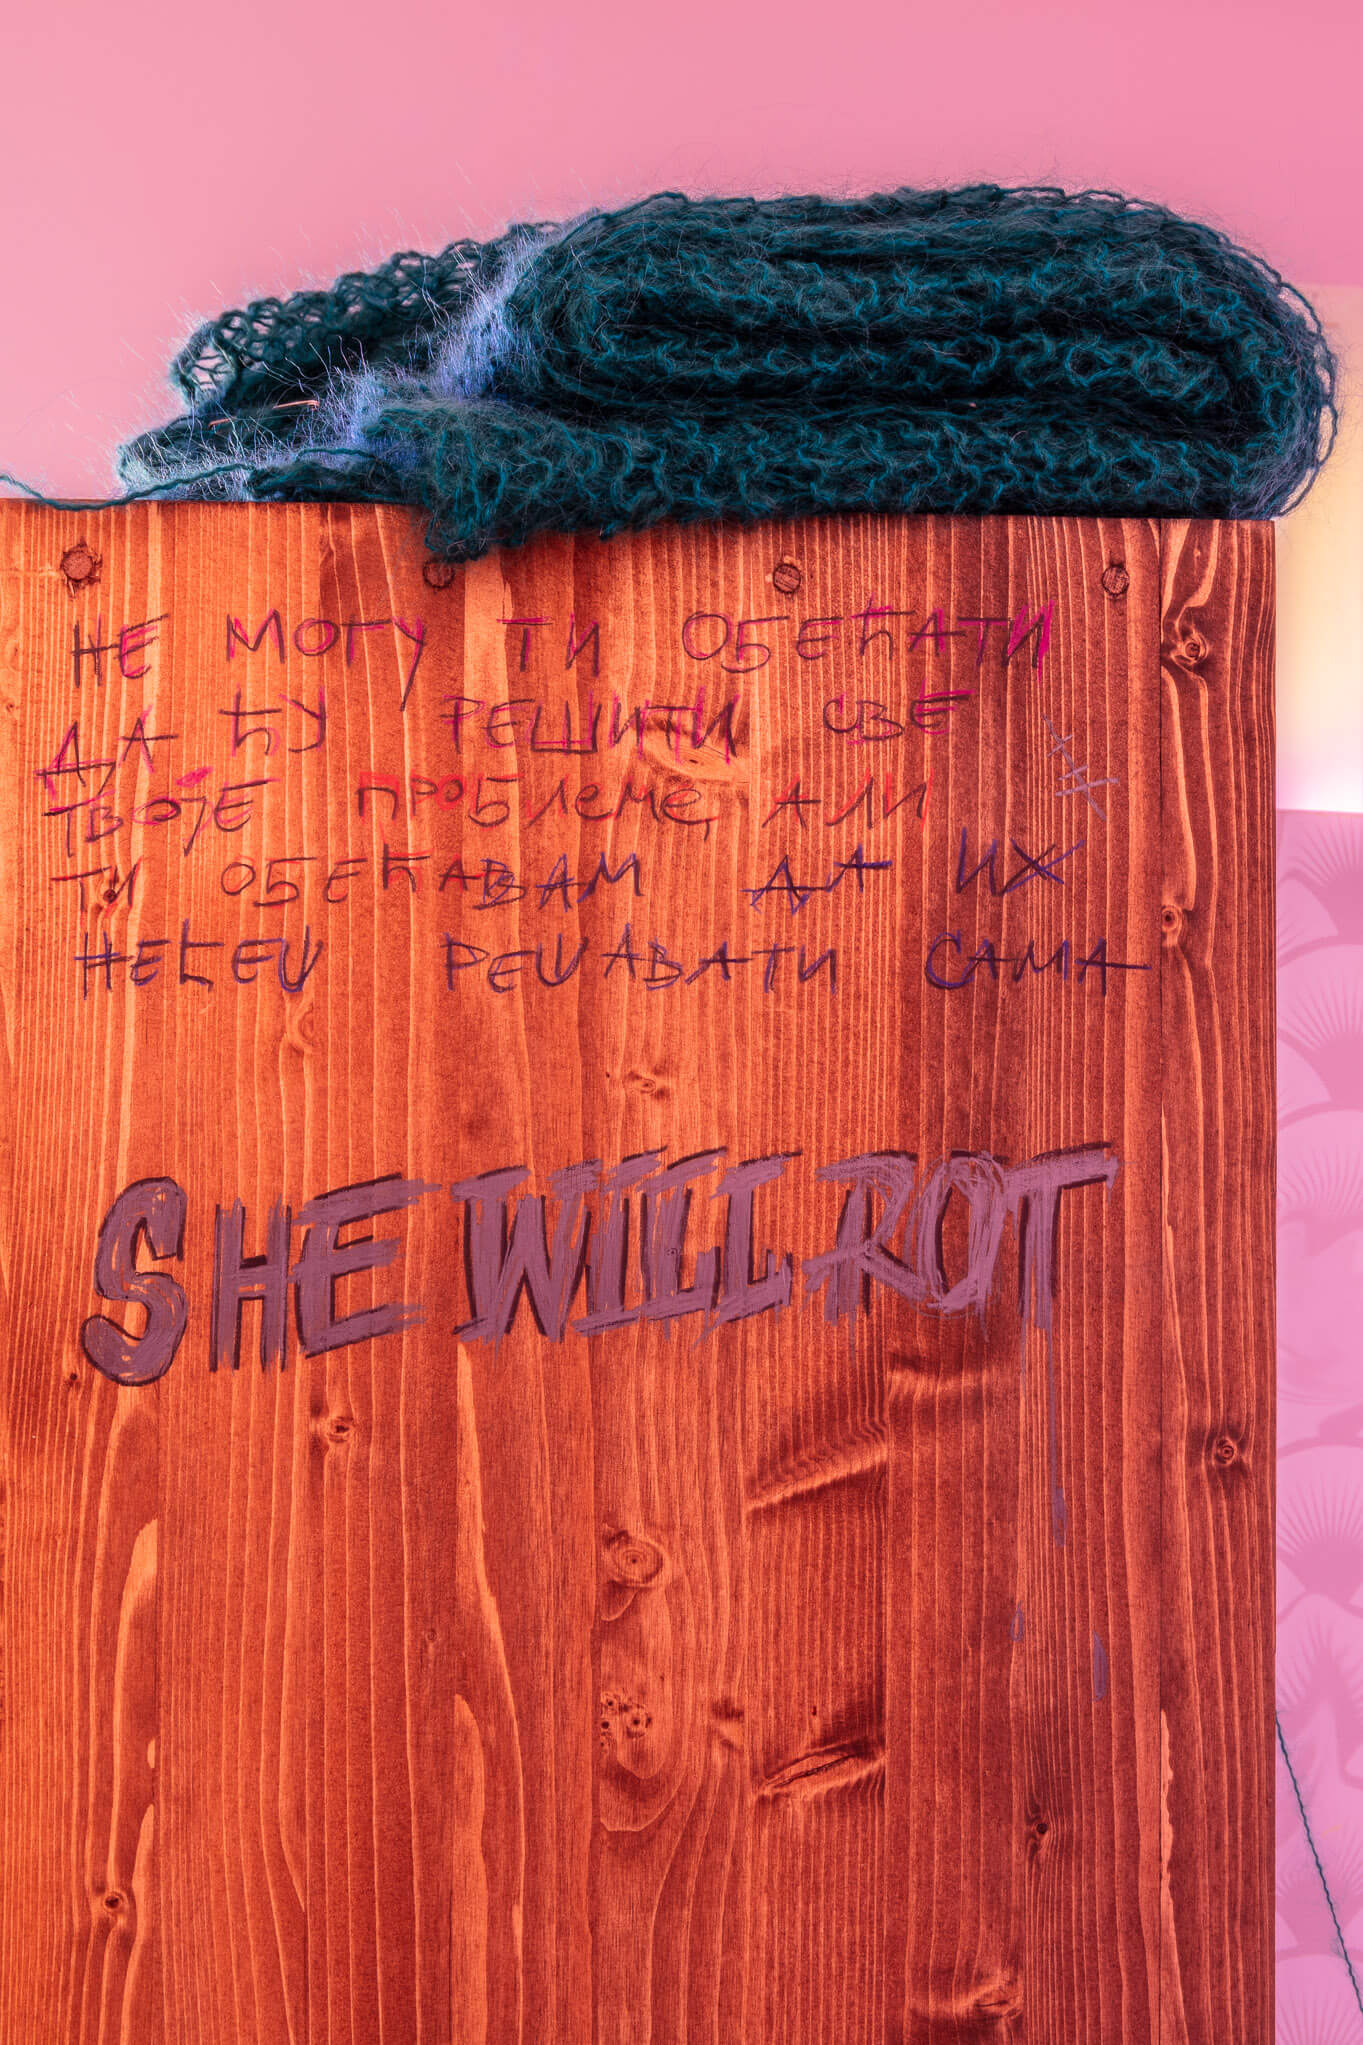 НЕ МОГУ ТИ ОБЕЋАТИ
ДА ЋУ РЕШИТИ СВЕ
ТВОЈЕ ПРОБЛЕМЕ, АЛИ
ТИ ОБЕЋАВАМ ДА ИХ
НЕЋЕШ РЕШАВАТИ САМА
SHE WILL ROT